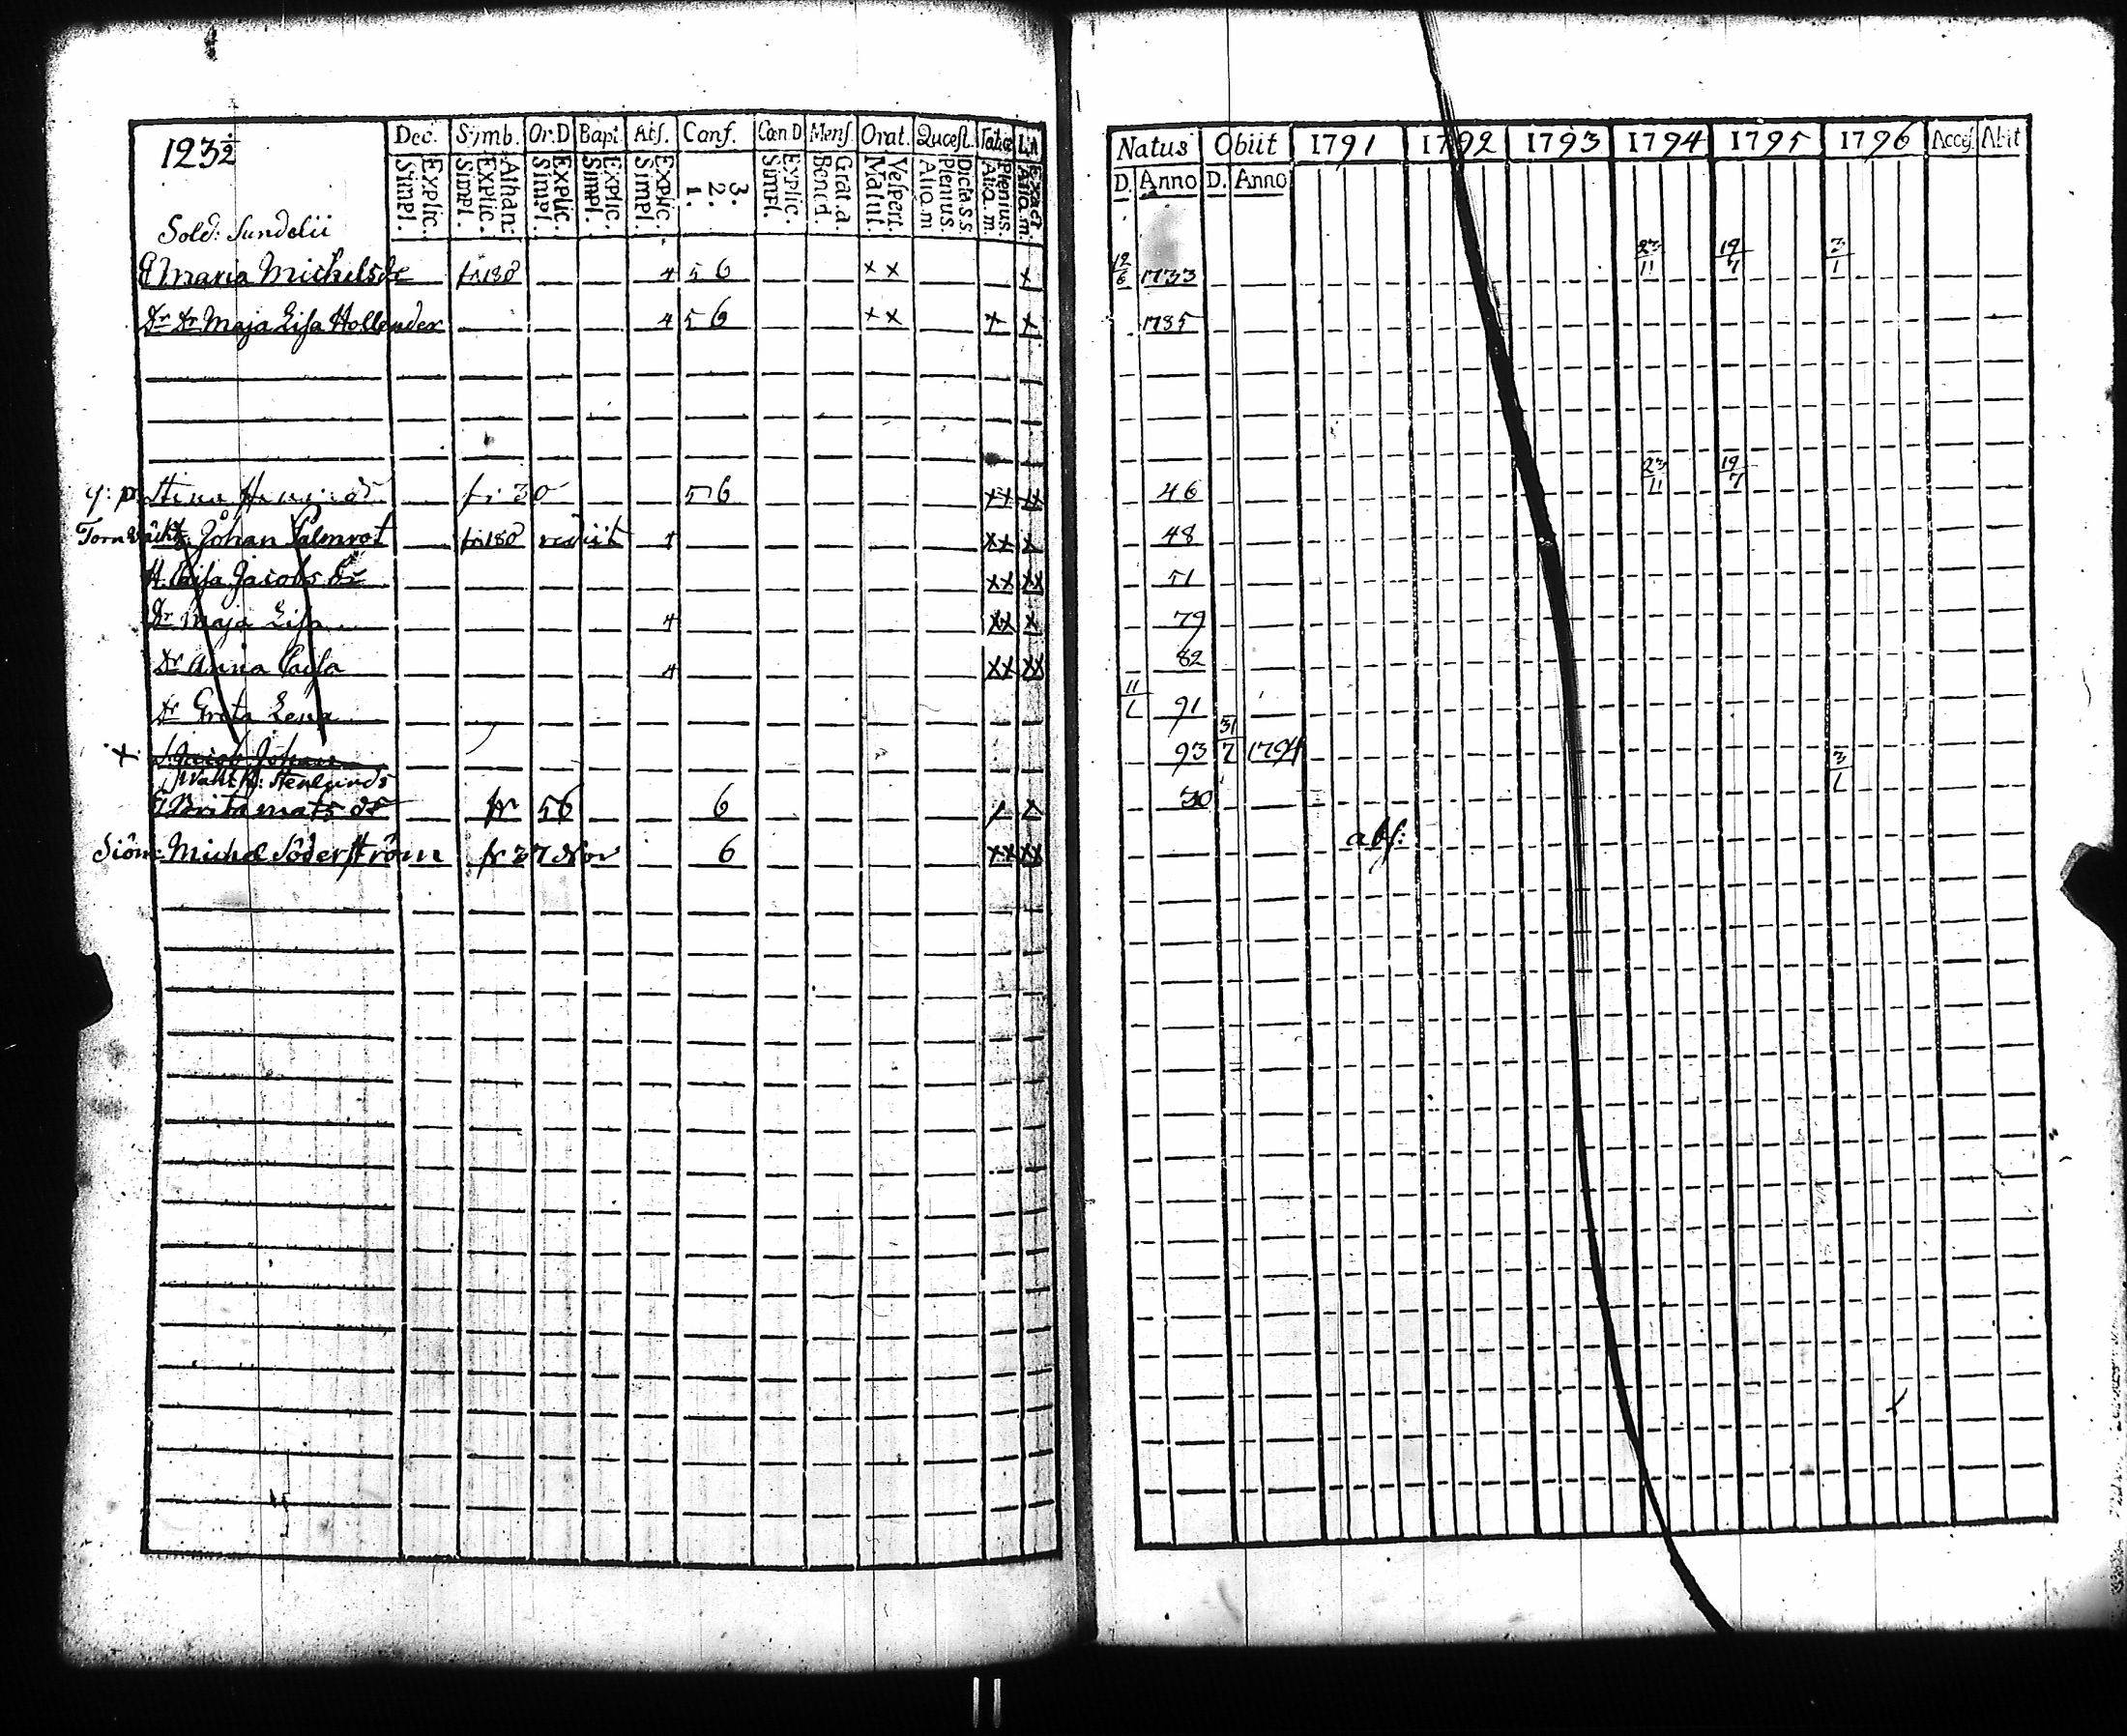 1232
Dec. Symb. Or.D Bapt. Abs. Conf. Cœn D Mens. Orat. Quœst. Tabūœ L.N
Explic. Simpl. Athan: Explic. Simpl. Explic. Simpl. Explic. Simpl. Explic. Simpl. 3. 2. 1. Explic. Simpl. Grat.a. Bened. Vespert. Matut. Dicta s.s. Plenius. Aliq.m Plenius. Aliq.m. Exact Aliq.m.
Sold: Sundelii
E Maria Michelsdr fr: 180 4 5 6 x x x
Dr Dr Maja Lisa Hollender 4 5 6 x x x x
5 6 xx xx
Tornväkt. Johan Palmrot fr: 180 rediit 4 xx x
H. Caisa Jacobs dr xx xx
Dr Maja Lisa 4 xx x
Dr Anna Caisa 4 xx xx
Dr Greta Lena
x S. Jacob Johan
Stenlunds
E Brita mats dr fr 56 6
Michel Söderström fr 37 Nov 6 xx xx
Natus Obiit 1791 1792 1793 1794 1795 1796 Acces. Abit
D. Anno D. Anno
12/6 1733 23/11 19/7 3/1
1785
46 23/11 19/7
48
51
79
82
11/1 91
93 31/7 1794
30 3/1
abs: